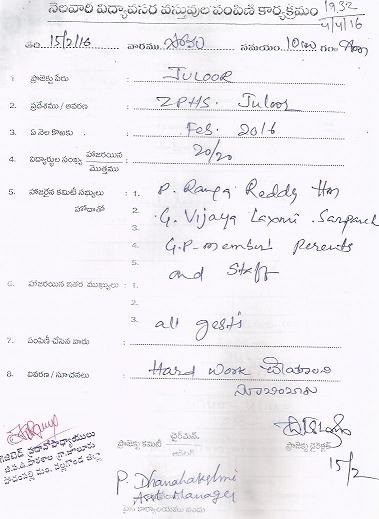 నెలవారి విద్యావసర వస్తువుల పంపిణి కార్యక్రమం 1932
4/4/16
తేది. 15/2/16 వారము సోమ సమయం 10 గం॥
1 ప్రాజెక్టు పేరు JULOOR
2. ప్రదేశము / ఆవరణ ZPHS. Juloor
3. ఏ నెల కొరకు Feb. 2016
4. విద్యార్థుల సంఖ్య హాజరయిన 20/20
మొత్తము
5. హాజరైన కమిటీ సభ్యులు : 1. P. Ranga Reddy Hm
హోదాతో 2. G. Vijaya Laxmi. Sarpanch
3. G.P-member parents
4.
5. and Staff
6. హాజరయిన ఇతర ముఖ్యులు : 1.
2.
3. all gests
7. పంపిణీ చేసిన వారు :
8. వివరణ / సూచనలు : Hard work చేయాలని
సూచించారు
గెజిటెడ్ ప్రధానోపాధ్యాయులు
ప్రాజెక్టు కమిటీ చైర్మన్.
ప్రాజెక్టు డైరెక్టర్
15/2
P. Dhanalakshmi
Asst Manager